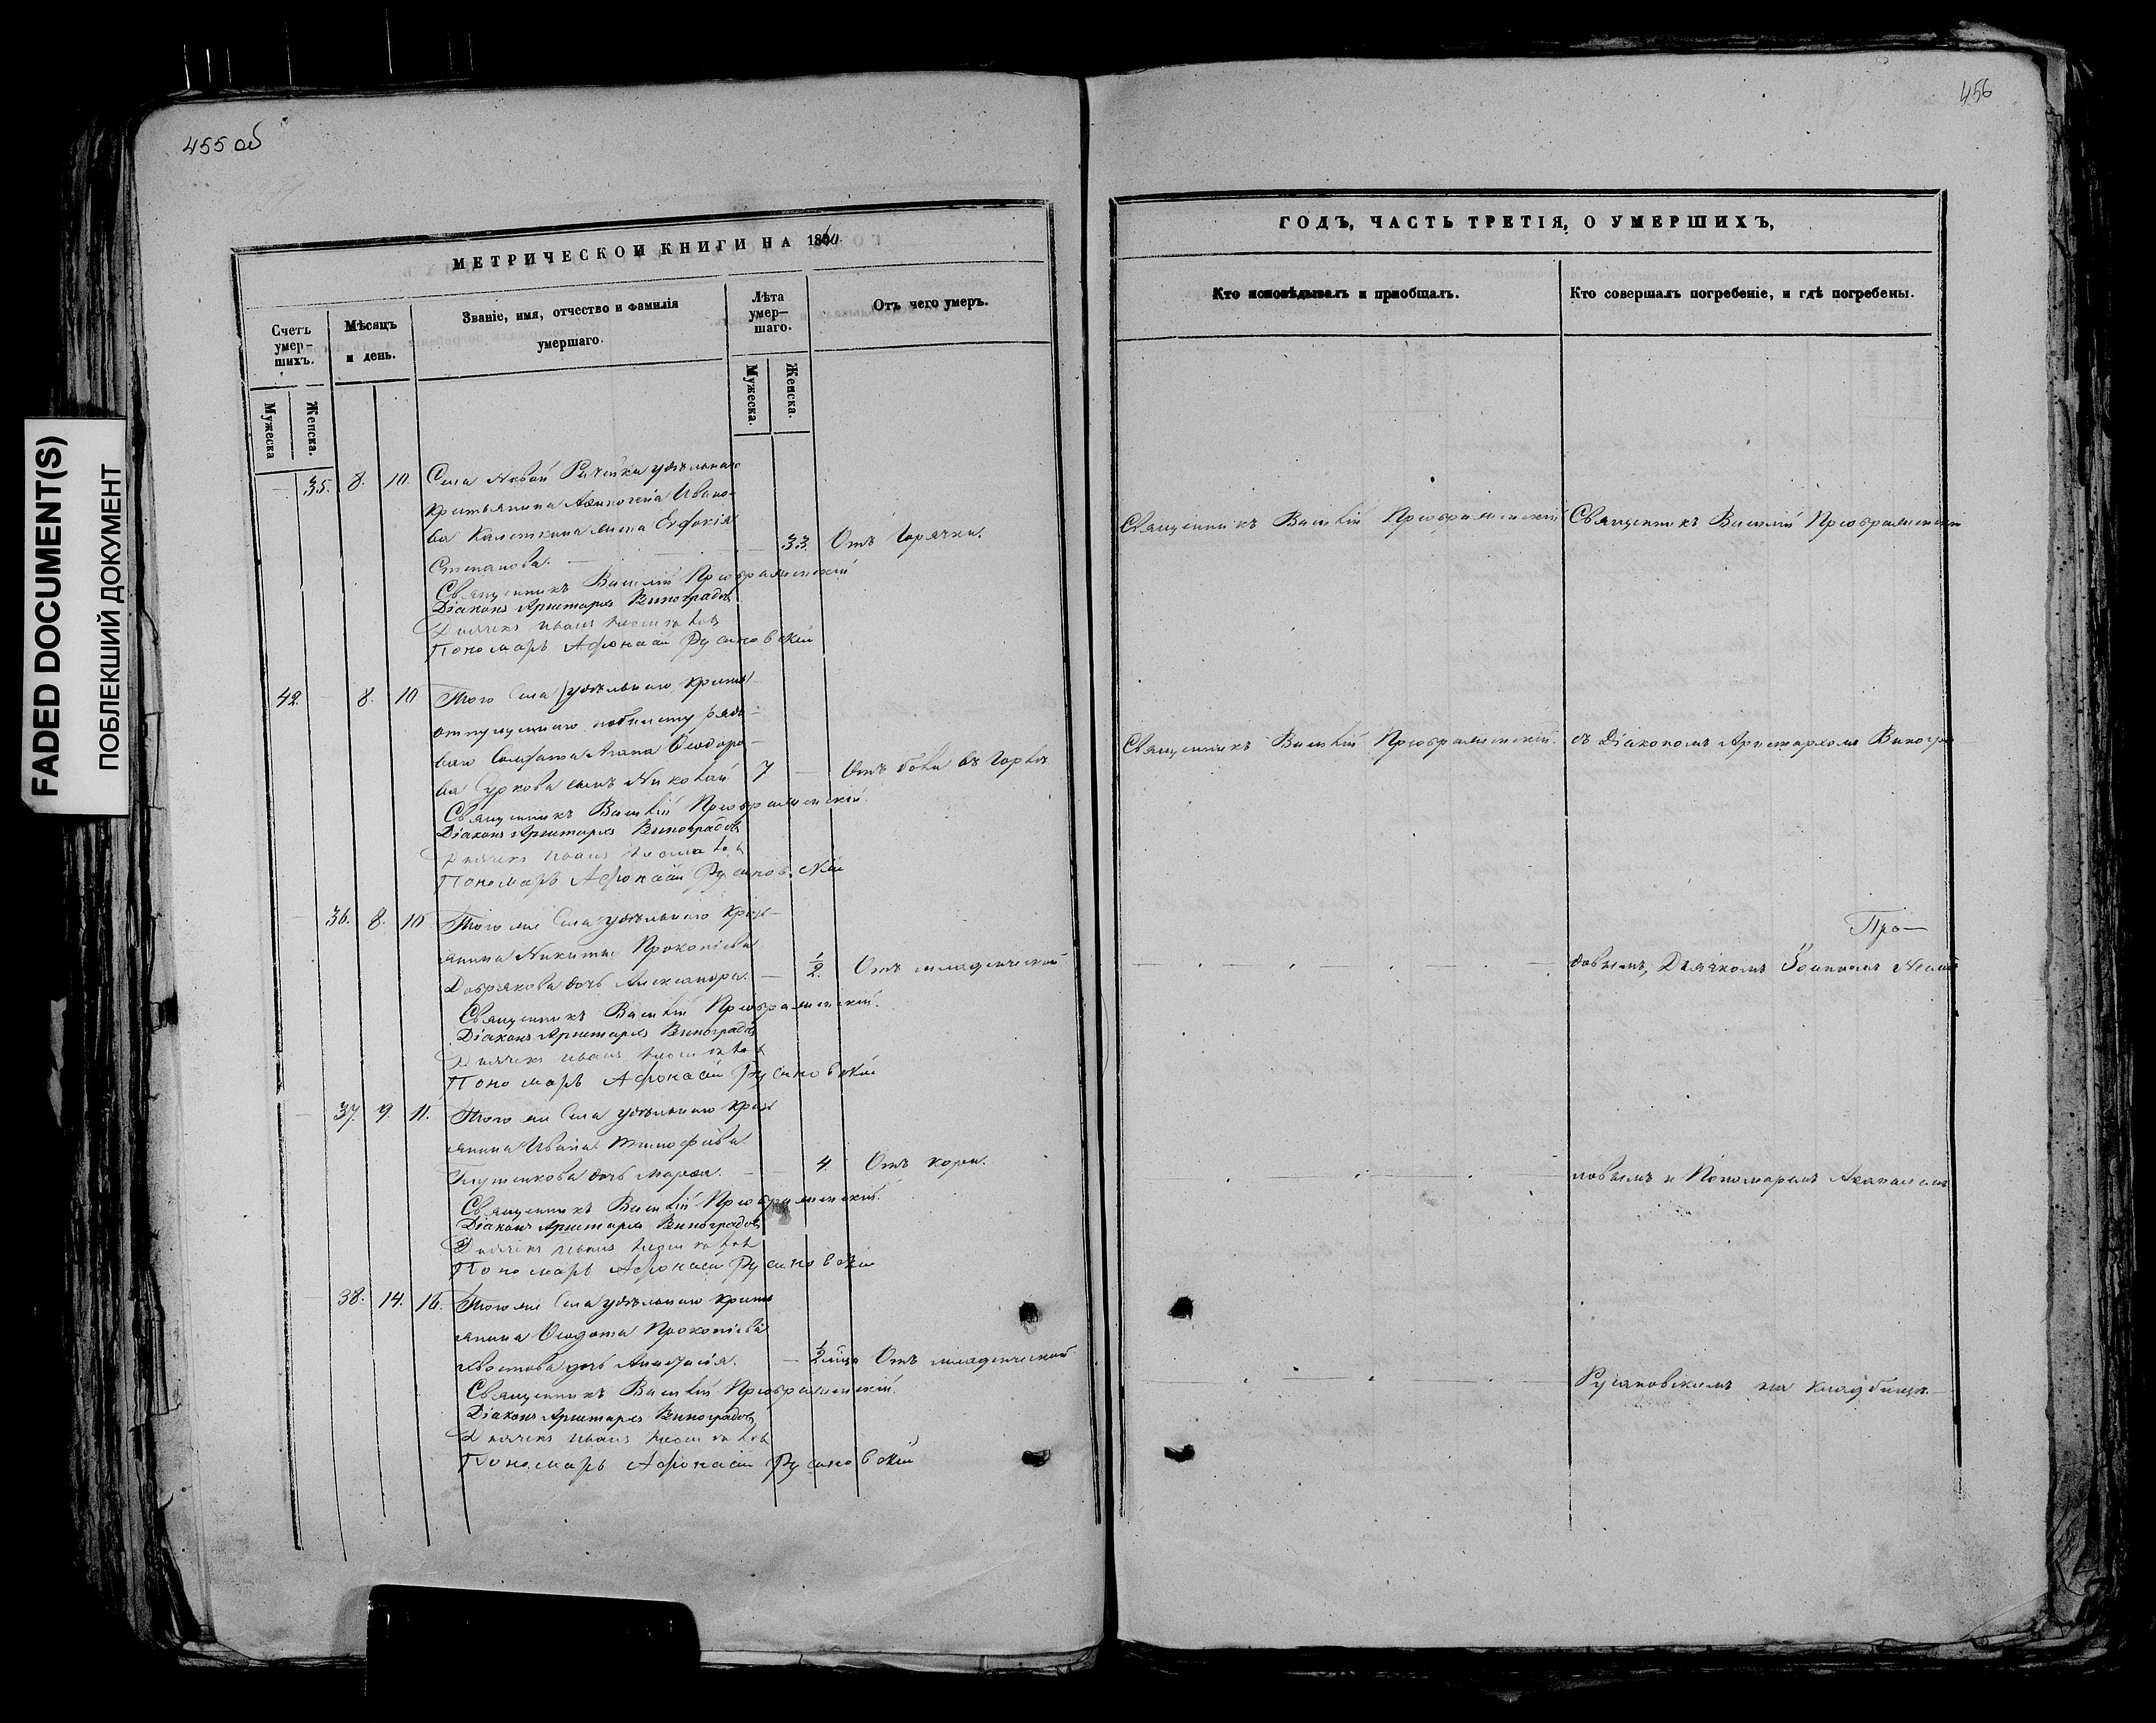 455 об
МЕТРИЧЕСКОЙ КНИГИ НА 1860.
Счетъ умер-шихъ.
Мѣсяцъ и день.
Званіе, имя, отчество и фамилія умершаго.
Лѣта умер-шаго.
Отъ чего умеръ.
Мужеска
Женска.
Мужеска.
Женска.
35. 8. 10. Села Новой Рачейки удѣльнаго
крестьянина Аѳиногена Ивано-
ва Калеткина жена Евфокія
Степанова. 33. Отъ горячки.
Священникъ Василій Преображенскій
Діаконъ Аристархъ Виноградовъ
Дьячекъ Иванъ
Пономарь Афонасій Русановскій
42. 8. 10 Того села удѣльнаго крестья
отпущеннаго по билету рядо-
ваго Солдата Ивана Ѳеодоро-
ва Суркова сынъ Николай 7 Отъ боли въ горлѣ
Священникъ Василій Преображенскій
Діаконъ Аристархъ Виноградовъ
Дьячекъ Иванъ
Пономарь Афонасій Русановскій
36. 8. 10 Того же Села удѣльнаго крестья-
янина Никиты Прокопіева
Добрякова дочь Александра. 1/2 Отъ младенческой
Священникъ Василій Преображенскій.
Діаконъ Аристархъ Виноградовъ
Дьячекъ Иванъ
Пономарь Афонасій Русановскій
37. 9. 11. Того же Села удѣльнаго крестья
янина Ивана Тимофѣева
дочь Марѳа. 4. Отъ кори.
Священникъ Василій Преображенскій.
Діаконъ Аристархъ Виноградовъ
Дьячекъ Иванъ
Пономарь Афонасій Русановскій
38. 14. 16. Того же Села удѣльнаго крестья
янина Ѳеодота Прокопіева
дочь Анастасія. Отъ младенческой
Священникъ Василій Преображенскій.
Діаконъ Аристархъ Виноградовъ
Дьячекъ Иванъ
Пономарь Афонасій Русановскій
456
ГОДЪ, ЧАСТЬ ТРЕТІЯ, О УМЕРШИХЪ,
Кто исповѣдывалъ и пріобщалъ.
Кто совершалъ погребеніе, и гдѣ погребены.
Священникъ Василій Преображенскій Священникъ Василій Преображенскій
Священникъ Василій Преображенскій. съ Діакономъ Аристархомъ Виногра
Про-
довымъ, Дьячкомъ Іоанномъ
ловымъ и Пономаремъ Аѳанасіемъ
Русановскимъ на кладбищѣ
FADED DOCUMENT(S)
ПОБЛЕКШИЙ ДОКУМЕНТ